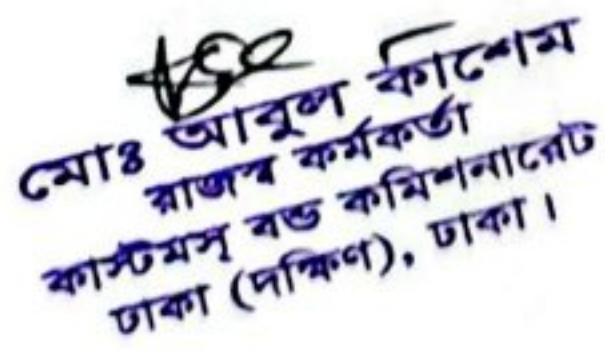 মোঃ আবুল কাশেম
রাজস্ব কর্মকর্তা
কাস্টমস্ বন্ড কমিশনারেট
ঢাকা (দক্ষিণ), ঢাকা।